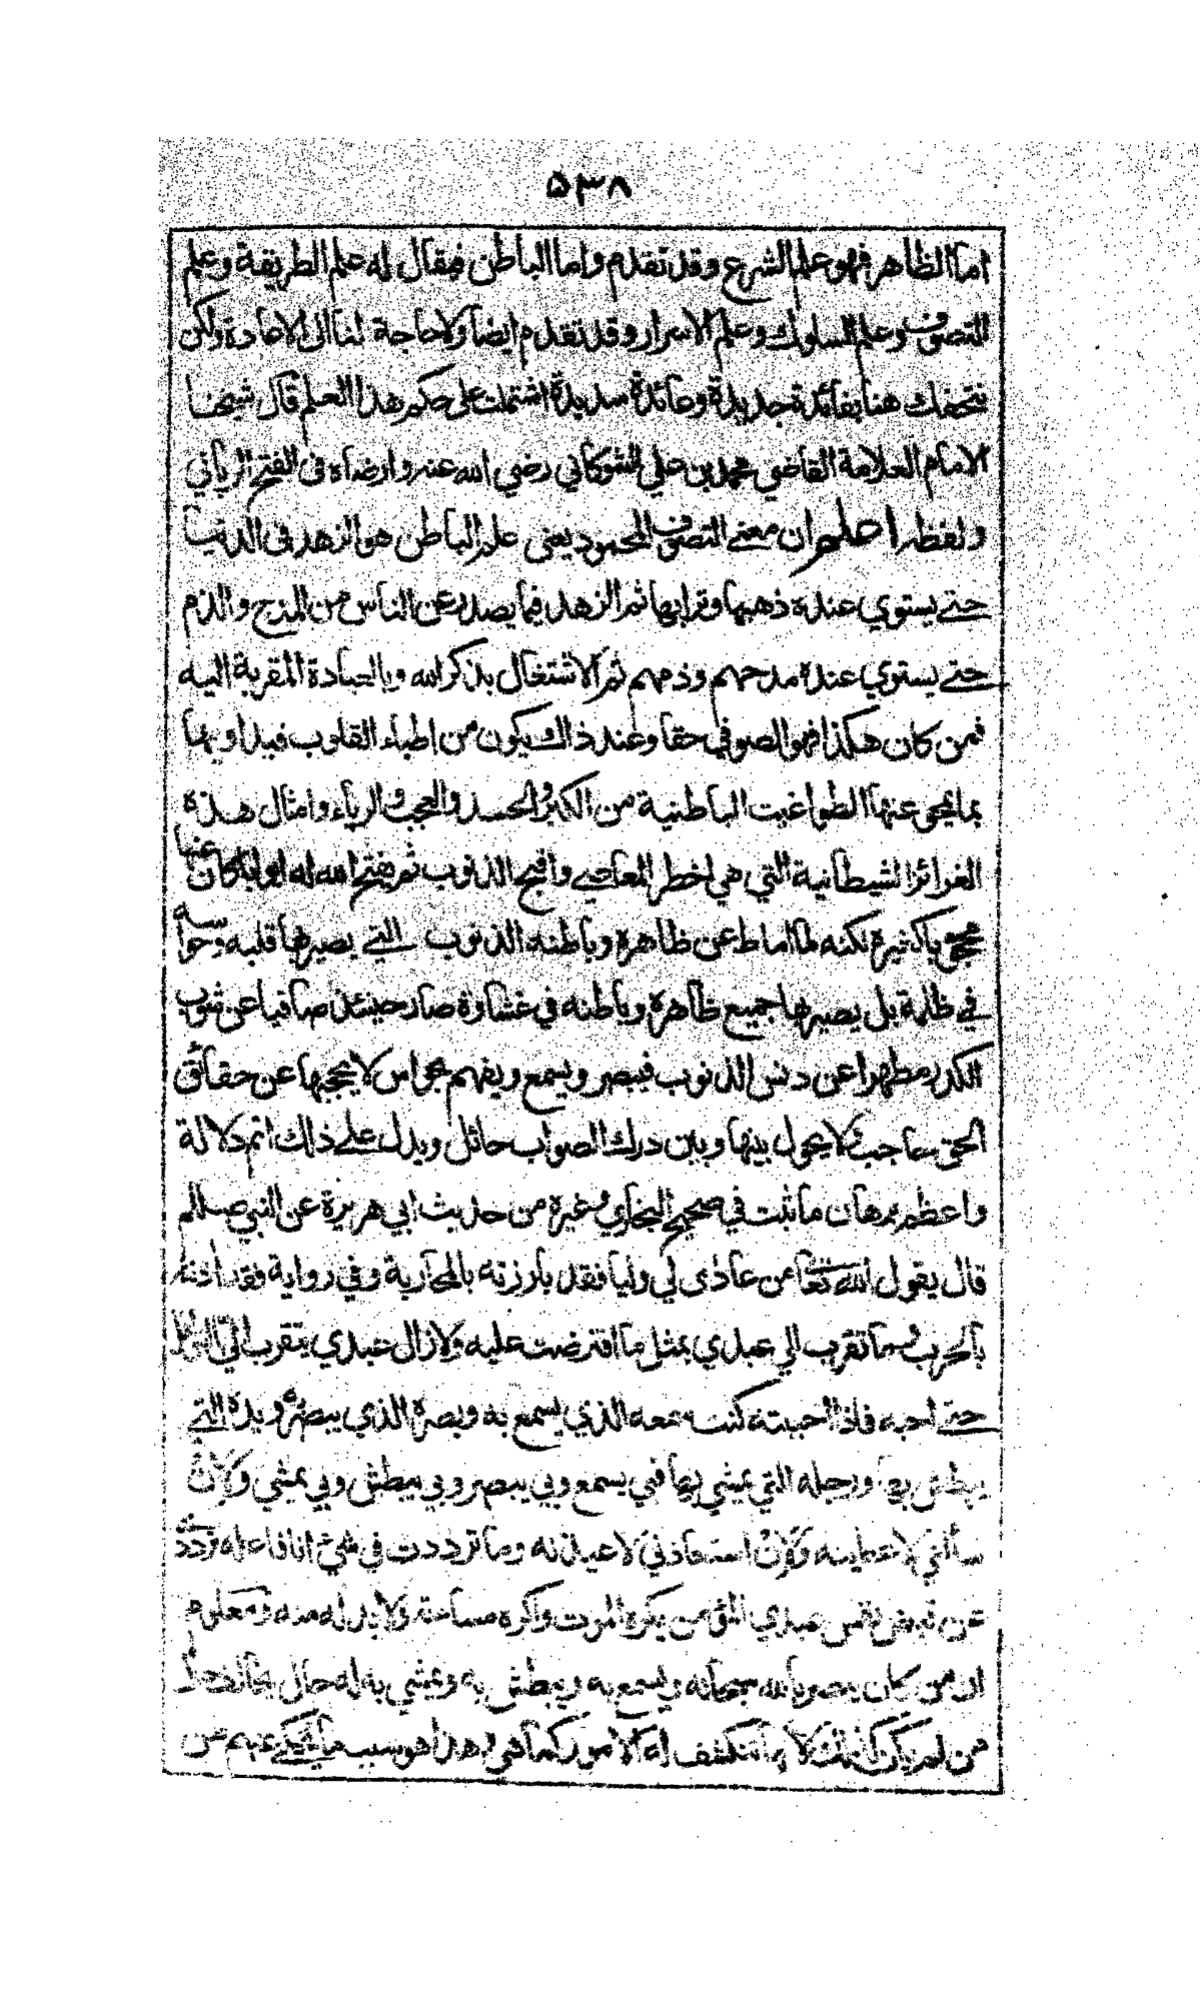 ٥٣٨
اما الظاهر فهو علم الشرع وقد تقدم واما الباطن فيقال له علم الطريقة وعلم
التصوف وعلم السلوك وعلم الاسرار وقد تقدم ايضا ولا حاجة لنا الى الاعادة ولكن
نتحفك هنا بفائدة جديدة وعائدة سديدة اشتملت على حكم هذا العلم قال شيخنا
الامام العلامة القاضي محمد بن علي الشوكاني رضي الله عنه وارضاه في الفتح الرباني
ولفظه اعلم ان معنى التصوف المحمود يعني علم الباطن هو الزهد في الدنيا
حتى يستوي عنده ذهبها وترابها ثم الزهد فيما يصدر عن الناس من المدح والذم
حتى يستوي عنده مدحهم وذمهم ثم الاشتغال بذكر الله وبالعبادة المقربة اليه
فمن كان هكذا فهو الصوفي حقا وعند ذلك يكون من اطباء القلوب فيداويها
بما يمحي عنها الطواغيت الباطنية من الكبر والحسد والعجب والرياء وامثال هذه
الغرائز الشيطانية التي هي اخطر المعاصي واقبح الذنوب ثم يفتح الله له ابوابا كان عنها
محجوبا كغيره لكنه لما اماط عن ظاهره وباطنه الذنوب التي يصير بها قلبه وحواسه
في ظلمة بل يصير بها جميع ظاهره وباطنه في غشاوة صار حينئذ صافيا عن شوب
الكدر مطهرا عن دنس الذنوب فيبصر ويسمع ويفهم بحواس لا يحجبها عن حقائق
الحق حاجب ولا يحول بينها وبين درك الصواب حائل ويدل على ذلك اتم دلالة
واعظم برهان ما ثبت في صحيح البخاري وغيره من حديث ابي هريرة عن النبي صلعم
قال يقول الله تعا من عادى لي وليا فقد بارزته بالمحاربة وفي رواية فقد اذنته
بالحرب وما تقرب الي عبدي بمثل ما افترضت عليه ولا زال عبدي يتقرب الي
حتى احبه فاذا احببته كنت سمعه الذي يسمع به وبصره الذي يبصر به ويده التي
يبطش بها ورجله التي يمشي بها فبي يسمع وبي يبصر وبي يبطش وبي يمشي ولان
سألني لاعطينه ولان استعاذني لاعيذنه وما ترددت في شيء انا فاعله ترددي
عن قبض نفس عبدي المؤمن يكره الموت واكره مساءته ولا بد له منه ومعلوم
ان من كان يبصر بالله سبحانه ويسمع به ويبطش به ويمشي به له حال يخالف حال
من لم يكن كذلك لا بد تنكشف له الامور كما هي وهذا هو سبب ما يحكى عنهم من